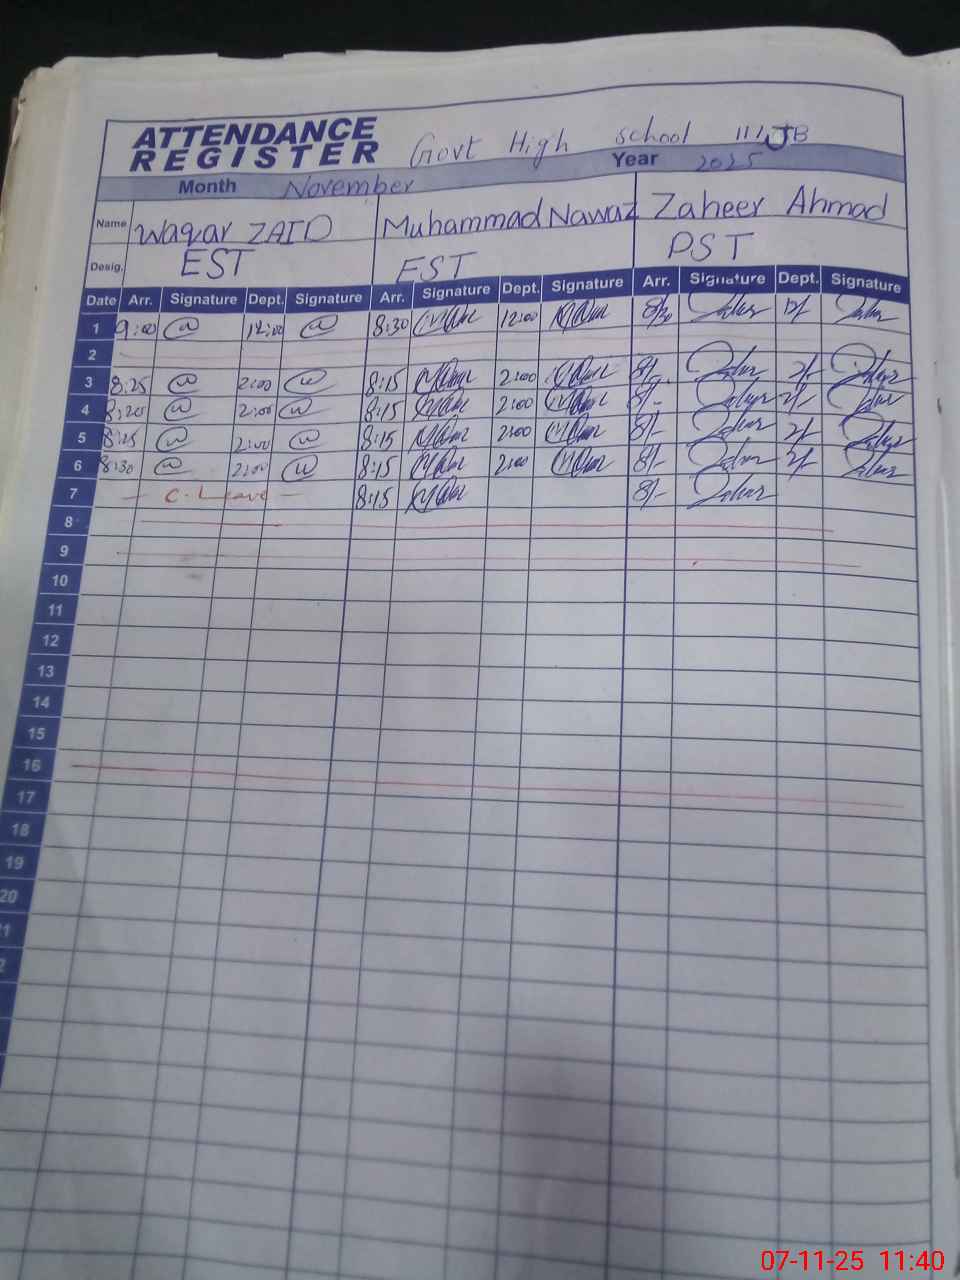 ATTENDANCE REGISTER Govt High school 111 JB
Month November Year 2025
Name Waqar ZAID Muhammad Nawaz Zaheer Ahmad
Desig. EST EST PST
Date Arr. Signature Dept. Signature Arr. Signature Dept. Signature Arr. Signature Dept. Signature
1 9:00 12:00 8:30 12:00 8/30 12/-
2
3 8:25 2:00 8:15 2:00 8/- 2/-
4 8:20 2:00 8:15 2:00 8/- 2/-
5 2:00 8:15 2:00 8/- 2/-
6 8:30 2:00 8:15 2:00 8/- 2/-
7 - C. Leave - 8:15 8/-
8
9
10
11
12
13
14
15
16
17
18
19
20
07-11-25 11:40